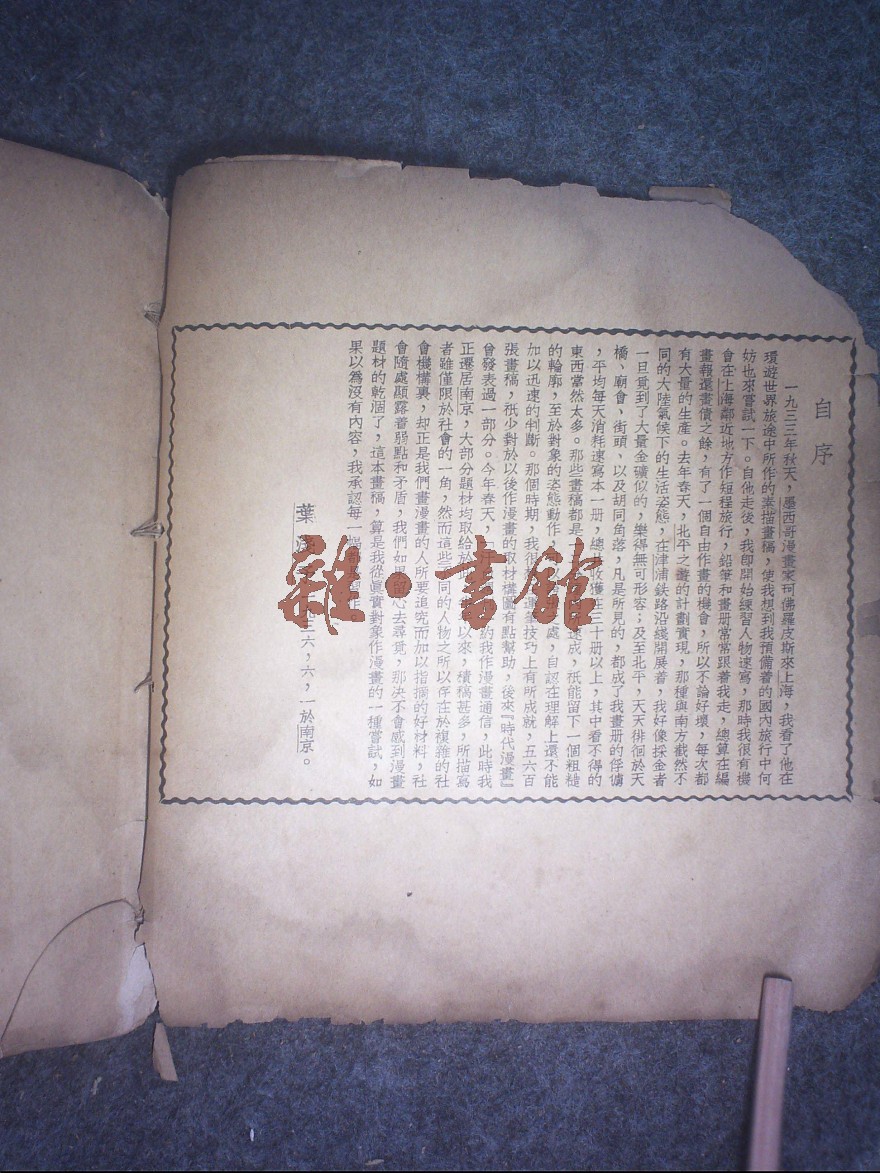 自序
一九三三年秋天，墨西哥漫畫家柯佛羅皮斯來上海，我看了他在
環遊世界旅途中所作的素描畫稿，使我想到我預備着的國內旅行中何
妨也來嘗試一下。自他走後，我即開始練習人物速寫，那時我很有機
會在上海鄰近地方作短程旅行，鉛筆和畫册常常跟着我走，總算在編
畫報還畫債之餘，有了一個自由作畫的機會，所以不論好壞，每次都
有大量的生產。去年春天，北平之遊的計劃實現，那種與南方截然不
同的大陸氣候下的生活姿態，在津浦鉄路沿綫開展着，我好像採金者
一旦覓到了大量金礦似的，樂得無可形容；及至北平，天天徘徊於天
橋、廟會，街頭，以及胡同角落，凡是所見的，都成了我畫册的俘虜
，平均每天消耗速寫本一册，總計收獲在三十册以上，其中看不得的
東西當然太多。那些畫稿都是 速成，祇能留下一個粗糙
的輪廓，至於對象的姿態動作， 處，自認在理解上還不能
加以迅速的判斷。那個時期，我很 技巧上有所成就，五六百
張畫稿，祇少對於以後作漫畫的取材構圖有點幫助，後來『時代漫畫』
曾發表過一部分。今年春天， 約我作漫畫通信，此時我
正遷居南京，大部分題材均取給於此， 以來，積稿甚多，所描寫
者雖僅限於社會的一角，然而這些不同的人物之所以存在於複雜的社
會機構裏，却正是我們畫漫畫的人所要追究而加以指摘的好材料，社
會隨處顯露着弱點和矛盾，我們如果留心去尋覓，那决不會感到漫畫
題材的乾涸了，這本畫稿，算是我從眞實對象作漫畫的一種嘗試，如
果以爲没有內容，我承認每一幅都是
葉 三六，六，一於南京。
雜·書館